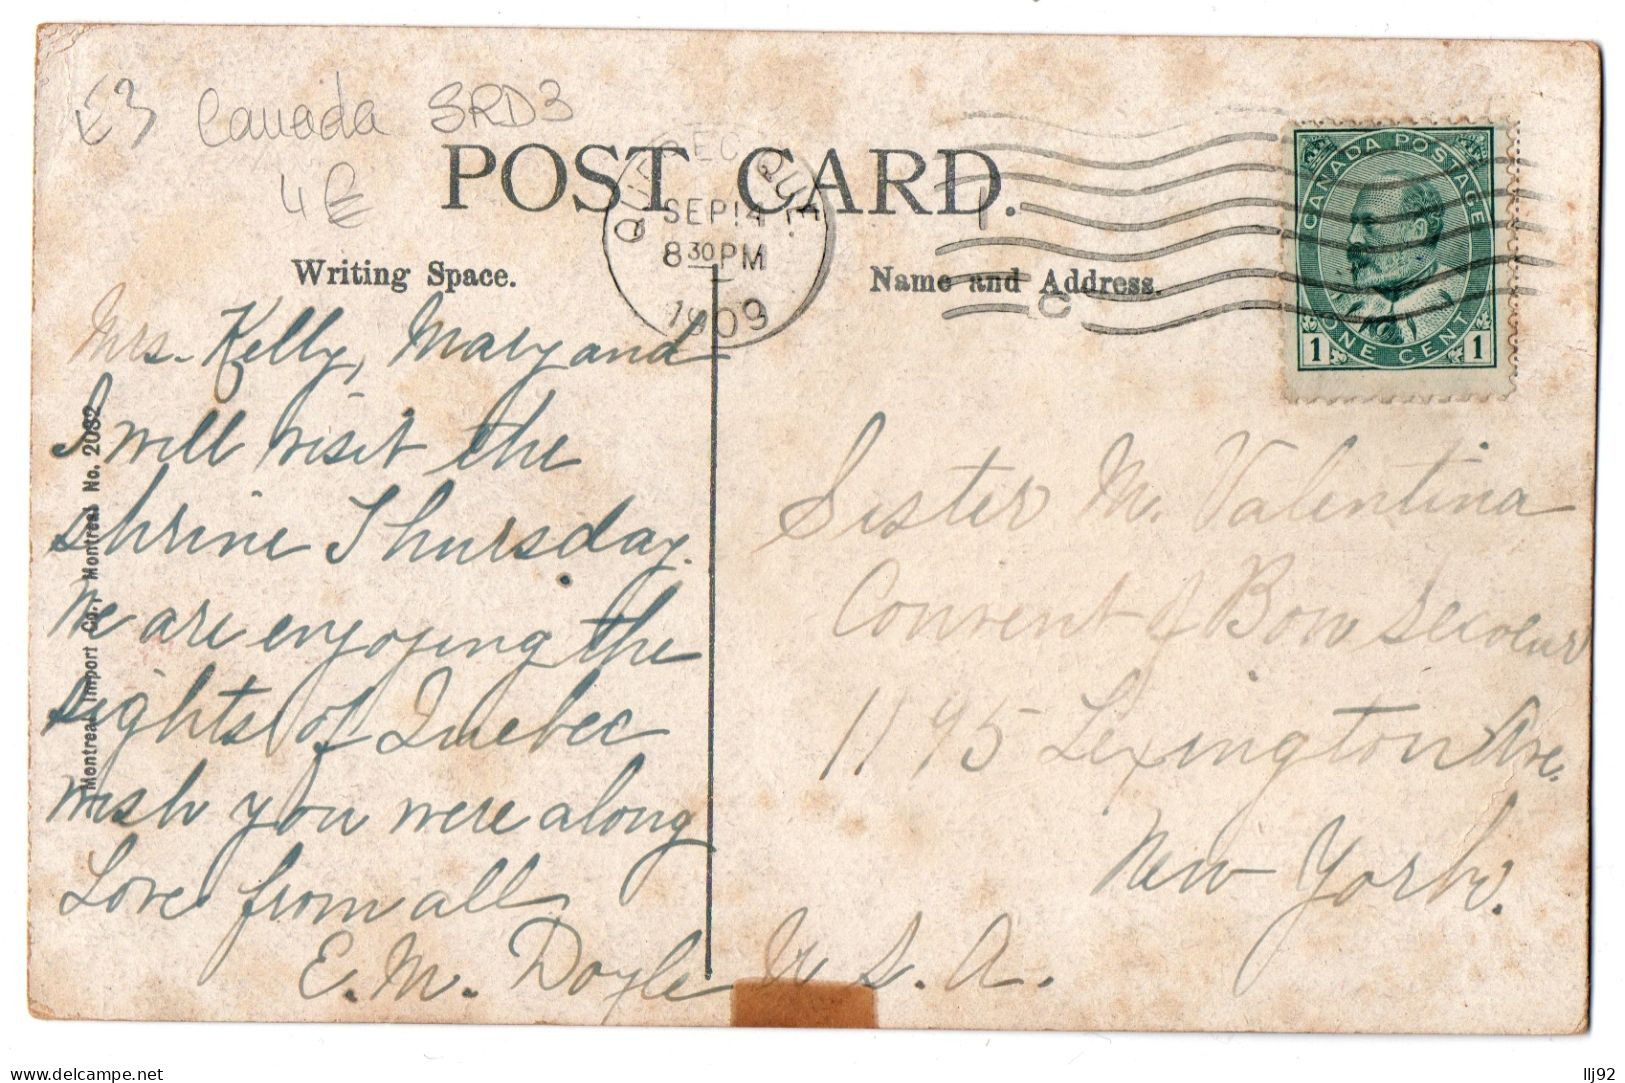 £3 Canada SRD3
4€
POST CARD.
QUEBEC, QUE.
SEP 14
8 30 PM
1909
CANADA POSTAGE
ONE CENT
1 1
Writing Space.
Name and Address.
Mrs. Kelly, Mary and
I will visit the
shrine Thursday.
We are enjoying the
sights of Quebec
wish you were along
Love from all
E. M. Doyle
Sister M. Valentina
Convent of Bon Secour
1195 Lexington Ave.
New York.
U. S. A.
Montreal Import Co., Montreal No. 2032
delcampe.net
llj92